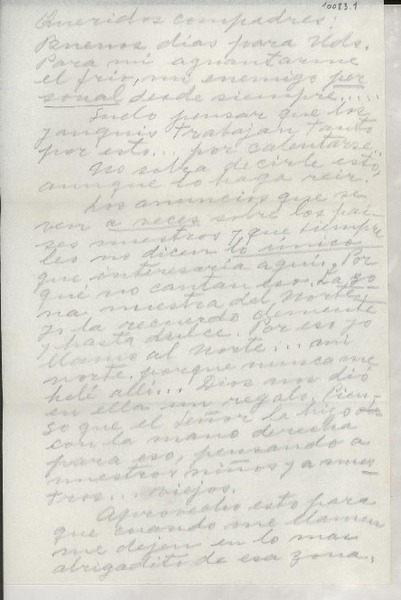 10083.1
Queridos compadres:
Buenos días para Uds.
Para mí aguantarme
el frío, mi enemigo per
sonal desde siempre....
Suelo pensar que los
yanquis trabajan tanto
por esto... por calentarse..
No sobra decirle esto,
aunque lo haga reír.
Los anuncios que se
ven a veces sobre los paí-
ses nuestros y que siempre
les no dicen lo único
que interesaría aquí. Por
qué no cantan eso. La zo
na, nuestra del Norte
yo la recuerdo clemente
y hasta dulce. Por eso yo
llamo al Norte... mi
norte, porque nunca me
helé allí... Dios nos dió
en ella un regalo. Pien-
so que el Señor la hizo
con la mano derecha
para eso, pensando a
nuestros niños y a nues-
tros... viejos.
Aprovecho esto para
que cuando me llamen
me dejen en lo mas
abrigadito de esa zona.